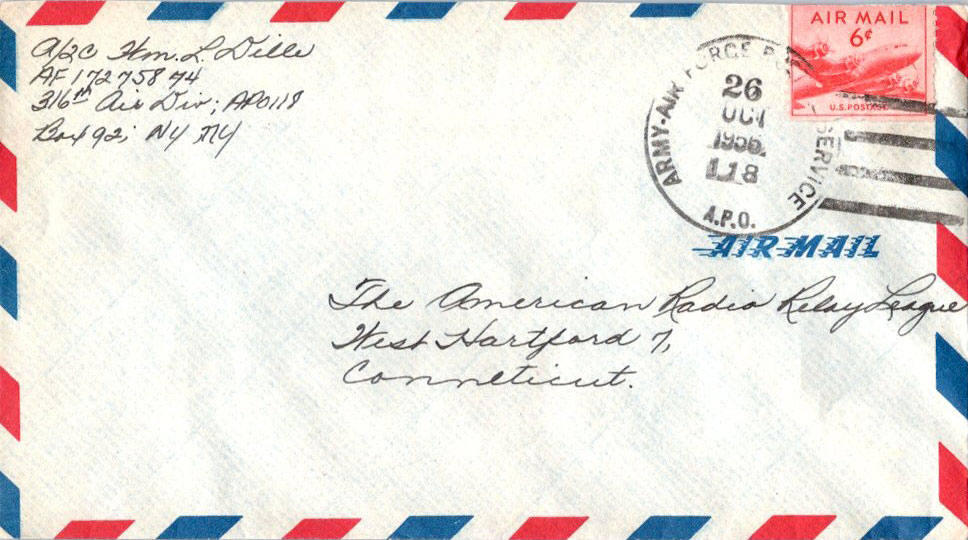 A/2C Wm. L. Dille
AF 17275874
316th Air Div; APO 118
Box 92; NY NY
AIR MAIL
6¢
U.S. POSTAGE
ARMY-AIR FORCE POSTAL SERVICE
26
OCT
1956
118
A.P.O.
AIR MAIL
The American Radio Relay League
West Hartford 7,
Conneticut.